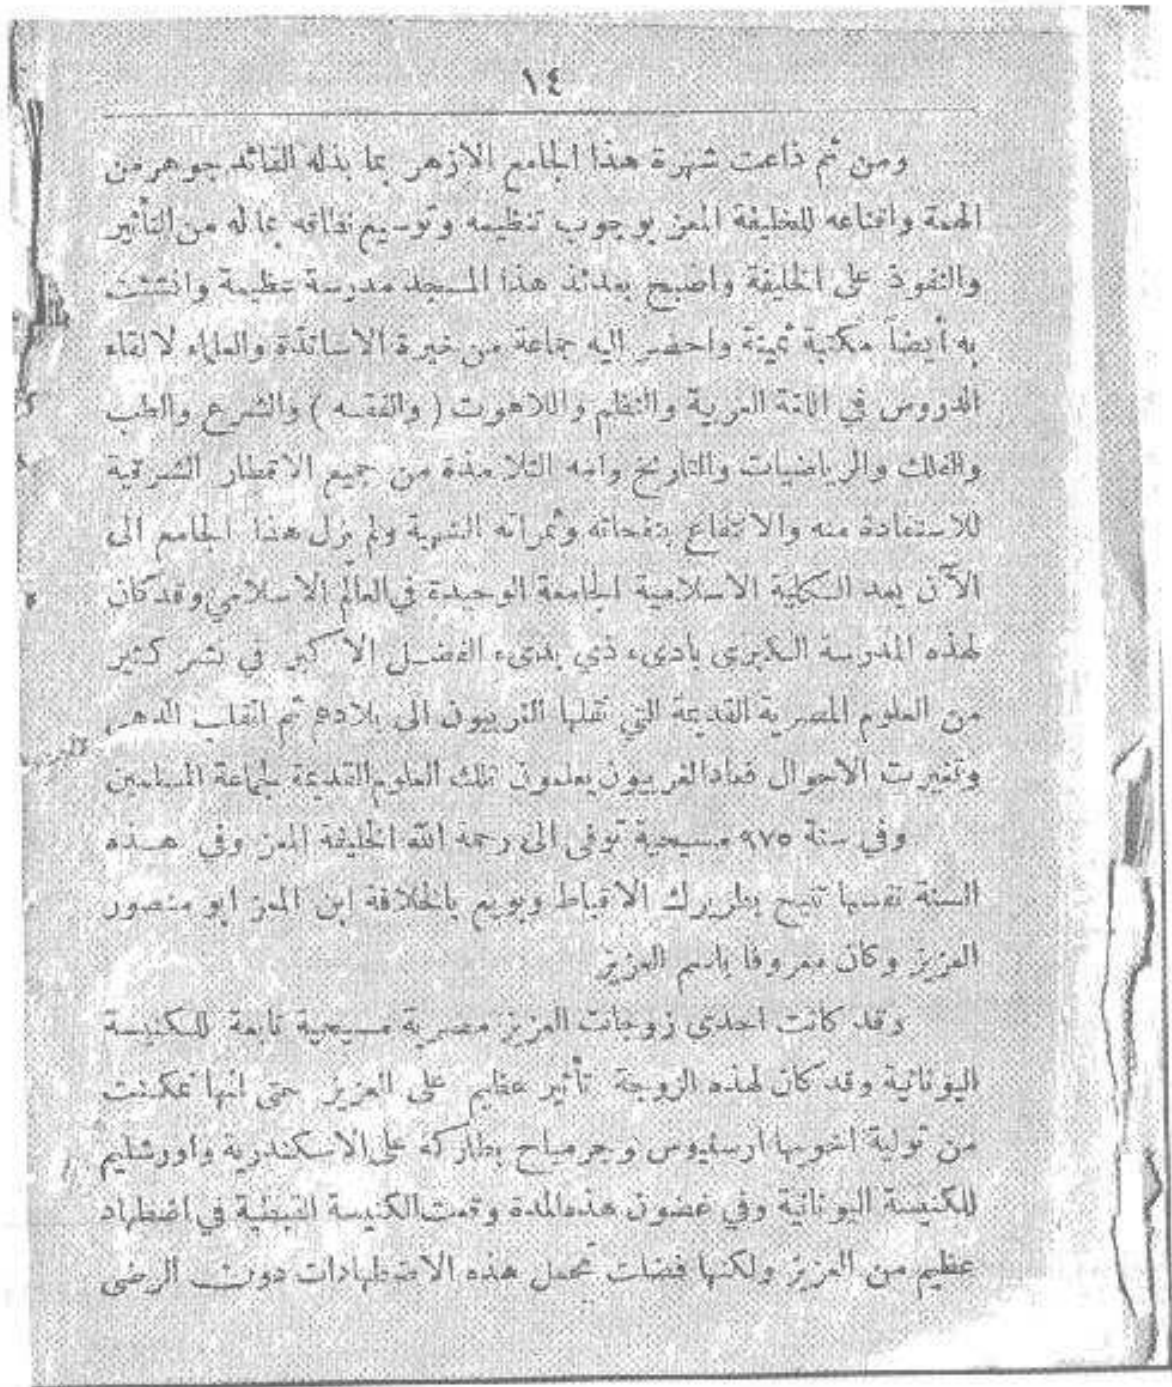 ١٤
ومن ثم ذاعت شهرة هذا الجامع الازهر بما بذله القائد جوهر من
الهمة واقناعه للخليفة المعز بوجوب تنظيمه وتوسيع نطاقه بما له من التأثير
والنفوذ على الخليفة واصبح بعدئذ هذا المسجد مدرسة عظيمة وانشئت
به أيضاً مكتبة ثمينة واحضر اليه جماعة من خيرة الاساتذة والعلماء لالقاء
الدروس في اللغة العربية والنظم واللاهوت ( والفقه ) والشرع والطب
والفلك والرياضيات والتاريخ وامه التلامذة من جميع الاقطار الشرقية
للاستفادة منه والانتفاع بنفحاته وثمراته الشهية ولم يزل هذا الجامع الى
الآن يعد الكلية الاسلامية الجامعة الوحيدة في العالم الاسلامي وقد كان
لهذه المدرسة الكبرى بادىء ذي بدىء الفضل الاكبر في نشر كثير
من العلوم المصرية القديمة التي نقلها الغربيون الى بلادهم ثم انقلب الدهر
وتغيرت الاحوال فعاد الغربيون يعلمون تلك العلوم القديمة لجماعة المسلمين
وفي سنة ٩٧٥ مسيحية توفى الى رحمة الله الخليفة المعز وفي هذه
السنة نفسها تنيح بطريرك الاقباط وبويع بالخلافة ابن المعز ابو منصور
العزيز وكان معروفا باسم العزيز
وقد كانت احدى زوجات العزيز مصرية مسيحية تابعة للكنيسة
اليونانية وقد كان لهذه الزوجة تأثير عظيم على العزيز حتى انها تمكنت
من تولية اخويها ارسليوس وجرمياح بطاركة على الاسكندرية واورشليم
للكنيسة اليونانية وفي غضون هذه المدة وقعت الكنيسة القبطية في اضطهاد
عظيم من العزيز ولكنها فضلت تحمل هذه الاضطهادات دون الرضى